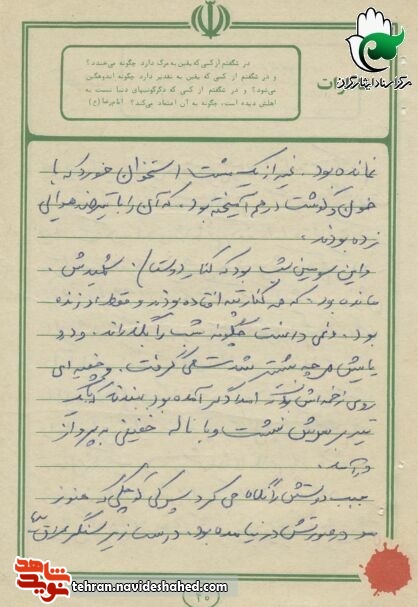 مرکز اسناد ایثارگران
در شگفتم از کسی که یقین به مرگ دارد چگونه می‌خندد؟
و در شگفتم از کسی که یقین به تقدیر دارد چگونه اندوهگین
می‌شود؟ و در شگفتم از کسی که دگرگونیهای دنیا نسبت به
اهلش دیده است، چگونه به آن اعتماد می‌کند؟ امام رضا (ع)
مانده بود. غیر از یک مشت استخوان خورد که با
خون و گوشت در هم آمیخته بود. که آن را با تیر ضد هوایی
زده بودند.
و این سومین شب بود که کنار دوستان شهیدش
مانده بود. که همه کنار تپه افتاده بودند و فقط او زنده
بود. و نمی دانست چگونه شب را بگذراند. و درد
پایش هر چه بیشتر شدت می گرفت. و
روی زخم اش امدادگر آمده بود ببندد که یک
تیر بر سرش نشست و با ناله خفیفی به پرواز
درآمد.
جیب دوستش را نگاه می کرد پسرکی کوچکی که هنوز
مو در صورتش در نیامده بود. درست زیر سنگر عراقی
۲۰
شاهد
نوید
tehran.navideshahed.com